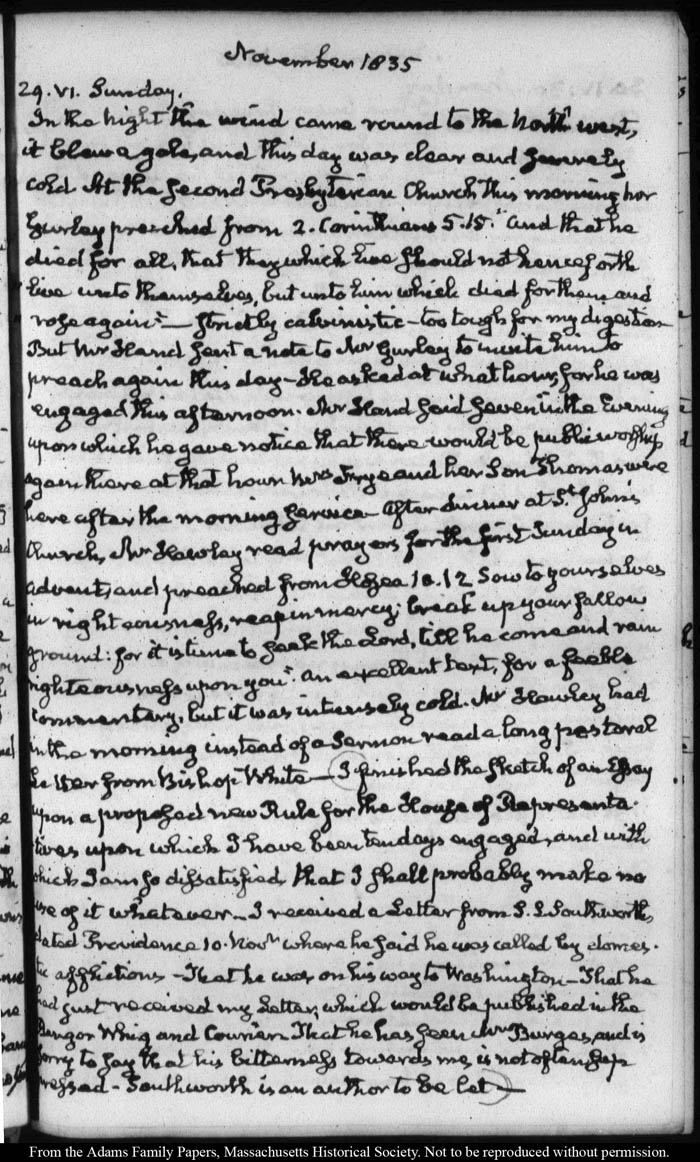 November 1835
29. VI. Sunday.
In the night the wind came round to the North west,
it blew a gale, and this day was clear and severely
cold At the Second Presbyterian Church this morning Mr
Gurley preached from 2. Corinthians 5.15. "and that he
died for all, that they which live should not henceforth
live unto themselves, but unto him which died for them, and
rose again" — Strictly calvinistic — too tough for my digestion
But Mr Hand sent a note to Mr Gurley to invite him to
preach again this day — He asked at what hour, for he was
engaged this afternoon. Mr Hand said seven in the Evening
upon which he gave notice that there would be public worship
again there at that hour. Mrs Frye and her Son Thomas were
here after the morning service — After dinner at St. John's
Church, Mr Hawley read prayers for the first Sunday in
advent, and preached from Hosea 10.12 Sow to yourselves
in righteousness, reap in mercy; break up your fallow
ground: for it is time to seek the Lord, till he come and rain
righteousness upon you". an excellent text, for a feeble
commentary, but it was intensely cold. Mr Hawley had
in the morning instead of a Sermon read a long pastoral
Letter from Bishop White — I finished the sketch of an Essay
upon a proposed new Rule for the House of Representa-
tives upon which I have been ten days engaged, and with
which I am so dissatisfied that I shall probably make no
use of it whatever — I received a Letter from S. L Southworth,
dated Providence 10. Novr where he said he was called by domes-
tic afflictions — That he was on his way to Washington — That he
had just received my Letter, which would be published in the
Bangor Whig and Courier. That he has seen Mr Burges, and is
sorry to say that his bitterness towards me, is not often sup
pressed — Southworth is an author to be let —
From the Adams Family Papers, Massachusetts Historical Society. Not to be reproduced without permission.